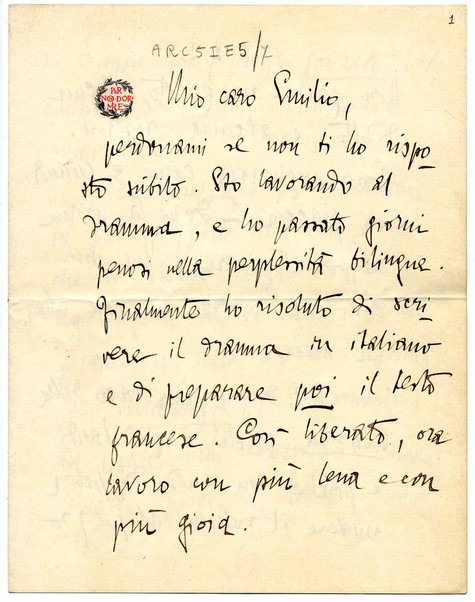 1
ARC5IE5/7
PER
NON DOR
MIRE
Mio caro Emilio,
perdonami se non ti ho rispo
sto subito. Sto lavorando al
dramma, e ho passato giorni
penosi nella perplessità bilingue.
Finalmente ho risoluto di scri
vere il dramma in italiano
e di preparare poi il testo
francese. Così liberato, ora
lavoro con più lena e con
più gioia.